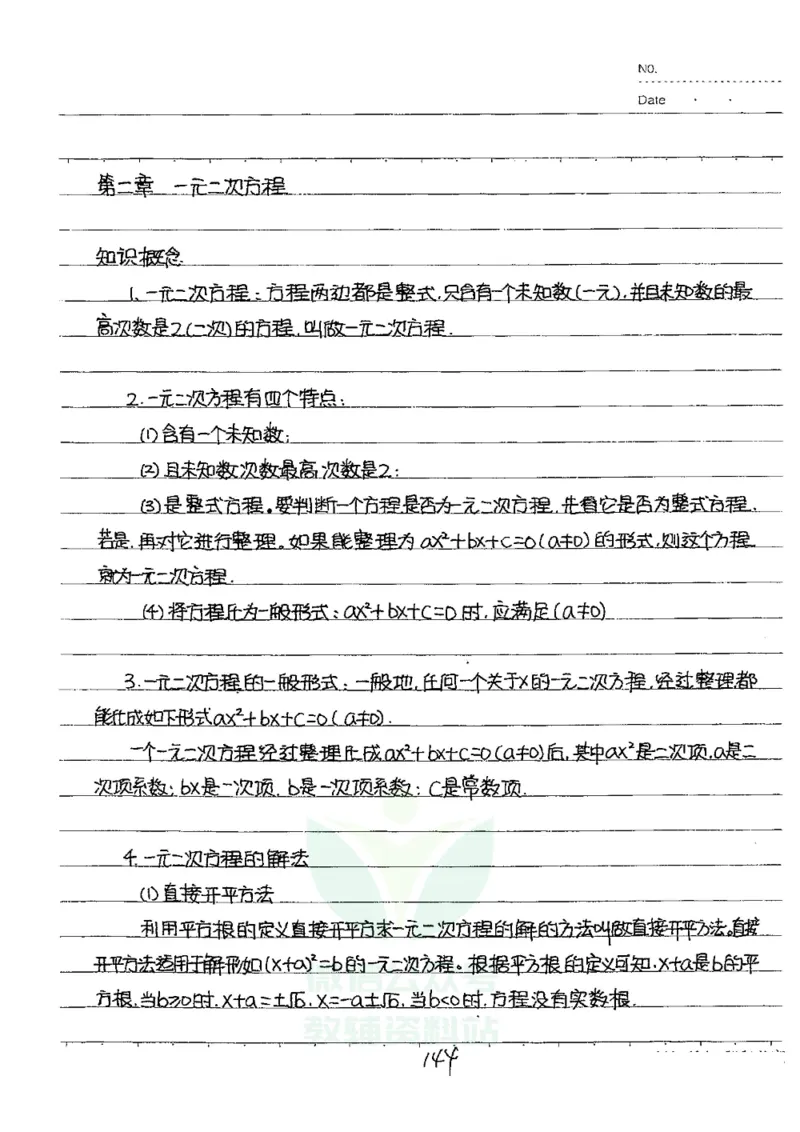 NO.
Date
第二章 一元二次方程
知识概念
1、一元二次方程：方程两边都是整式，只含有一个未知数(一元)，并且未知数的最
高次数是2(二次)的方程，叫做一元二次方程．
2．一元二次方程有四个特点：
(1)含有一个未知数；
(2)且未知数次数最高次数是2；
(3)是整式方程。要判断一个方程是否为一元二次方程，先看它是否为整式方程，
若是，再对它进行整理。如果能整理为 ax²+bx+c=0(a≠0)的形式，则这个方程
就为一元二次方程．
(4)将方程化为一般形式：ax²+bx+c=0时，应满足(a≠0)
3．一元二次方程的一般形式：一般地，任何一个关于x的一元二次方程，经过整理都
能化成如下形式ax²+bx+c=0(a≠0)．
一个一元二次方程经过整理化成ax²+bx+c=0(a≠0)后，其中ax²是二次项，a是二
次项系数；bx是一次项，b是一次项系数；c是常数项．
4．一元二次方程的解法
(1)直接开平方法
利用平方根的定义直接开平方求一元二次方程的解的方法叫做直接开平方法。直接
开平方法适用于解形如(x+a)²=b的一元二次方程。根据平方根的定义可知，x+a是b的平
方根，当b≥0时，x+a=±√b，x=-a±√b，当b<0时，方程没有实数根．
微信公众号
教辅资料站
144